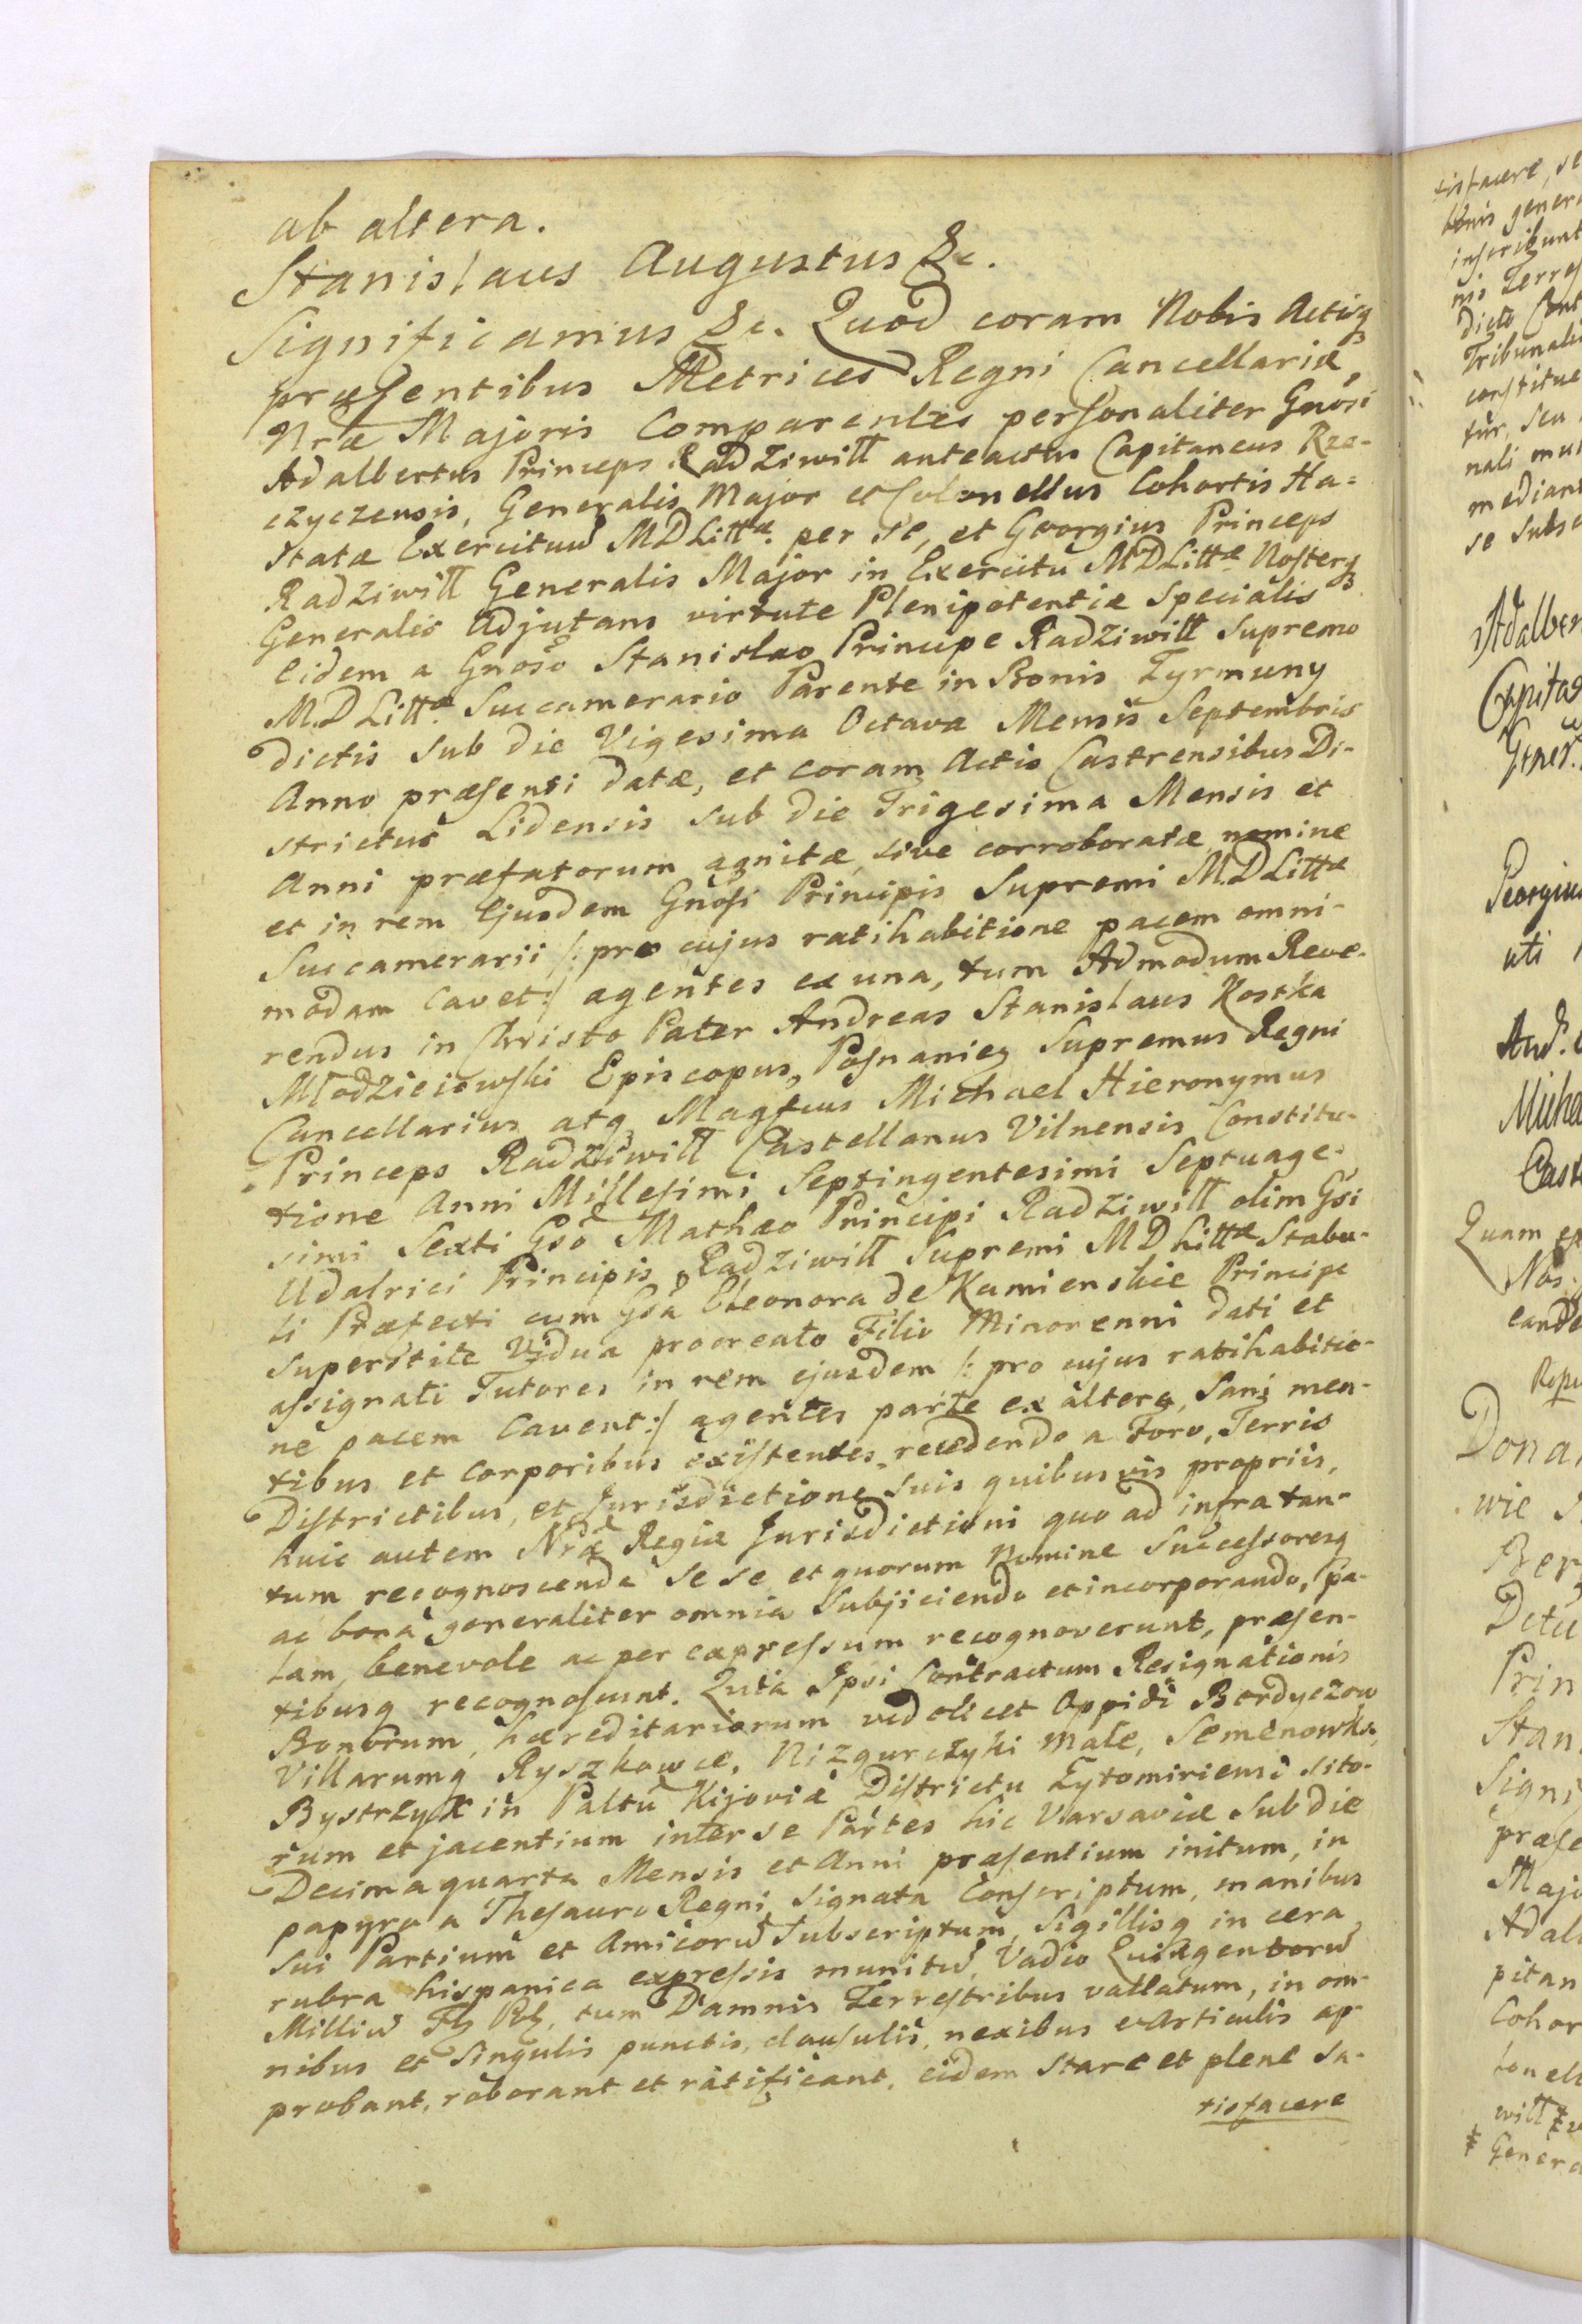 ab altera.
Stanislaus Augustus &c.
Significamus &c. Quod coram Nobis Actisq
præsentibus Metrices Regni Cancellariæ
Nræ Majoris Comparentes personaliter Gnosi
Adalbertus Princeps Radziwill anteactus Capitaneus Rze-
czyczensis, Generalis Major et Colonellus Cohortis Ha-
statæ Exercituu MDLittæ. per se, et Georgius Princeps
Radziwill Generalis Major in Exercitu MDLittæ Nosterq
Generalis Adjutans virtute Plenipotentiæ Specialis
Eidem a Gnoso Stanislao Principe Radziwill Supremo
M.D Littæ. Succamerario Parente in Bonis Zyrmuny
dictis sub die Vigesima Octava Mensis Septembris
Anno præsenti datæ, et coram Actis Castrensibus Di-
strictus Lidensis sub die Trigesima Mensis et
Anni præfatorum agnitæ, sive corroboratæ nomine
et in rem Ejusdem Gnosi Principis Supremi M.D Littæ
Succamerarii /: pro cujus ratihabitione pacem omni-
modam Cavet :/ agentes ex una, tum Admodum Reve-
rendus in Christo Pater Andreas Stanislaus Kostka
Młodzieiowski Episcopus Posnanieq Supremus Regni
Cancellarius atq Magfcus Michael Hieronymus
Princeps Radziwill Castellanus Vilnensis Constitu-
tione Anni Millesimi Septingentesimi Septuage-
simi Sexti Gso Mathæo Principi Radziwill olim Gsi
Udalrici Principis Radziwill Supremi MD Littæ Stabu-
li Præfecti cum Gsa Eleonora de Kamienskie Principe
superstite Vidua procreato Filio Minorenni dati et
assignati Tutores in rem ejusdem /: pro cujus ratihabitio-
ne pacem Cavent :/ agentes parte ex altera, Sani men-
tibus et Corporibus existentes, recedendo a Foro, Terris
Districtibus, et Jurisdictione suis quibusvis propriis,
huic autem Nræ Regiæ Jurisdictioni quo ad infra tan-
tum recognoscenda se se et quorum Nomine Successoresq
ac bona generaliter omnia Subjiciendo et incorporando, Pa-
lam, benevole ac per expressum recognoverunt, præsen-
tibusq recognoscunt. Quia Ipsi Contractum Resignationis
Bonorum hæreditariorum videlicet Oppidi Berdyczow
Villarumq Ryszkowce, Nizgurczyki Małe, Semenowka,
Bystrzyk in Paltu Kijoviæ Districtu Zytomiriensi sito-
rum et jacentium inter se Partes hic Varsaviæ sub die
Decima quarta Mensis et Anni præsentium initum, in
papyro a Thesauro Regni Signata Conscriptum, manibus
sui Partium et Amicoru Subscriptum, Sigillisq in cera
rubra hispanica expressis munitu, Vadio Quingentoru
Milliu Fl Pol, tum Damnis Terrestribus vallatum, in om-
nibus et Singulis punctis, clausulis, nexibus et Articulis ap
probant, roborant et ratificant, eidem Stare et plene Sa-
tisfacere